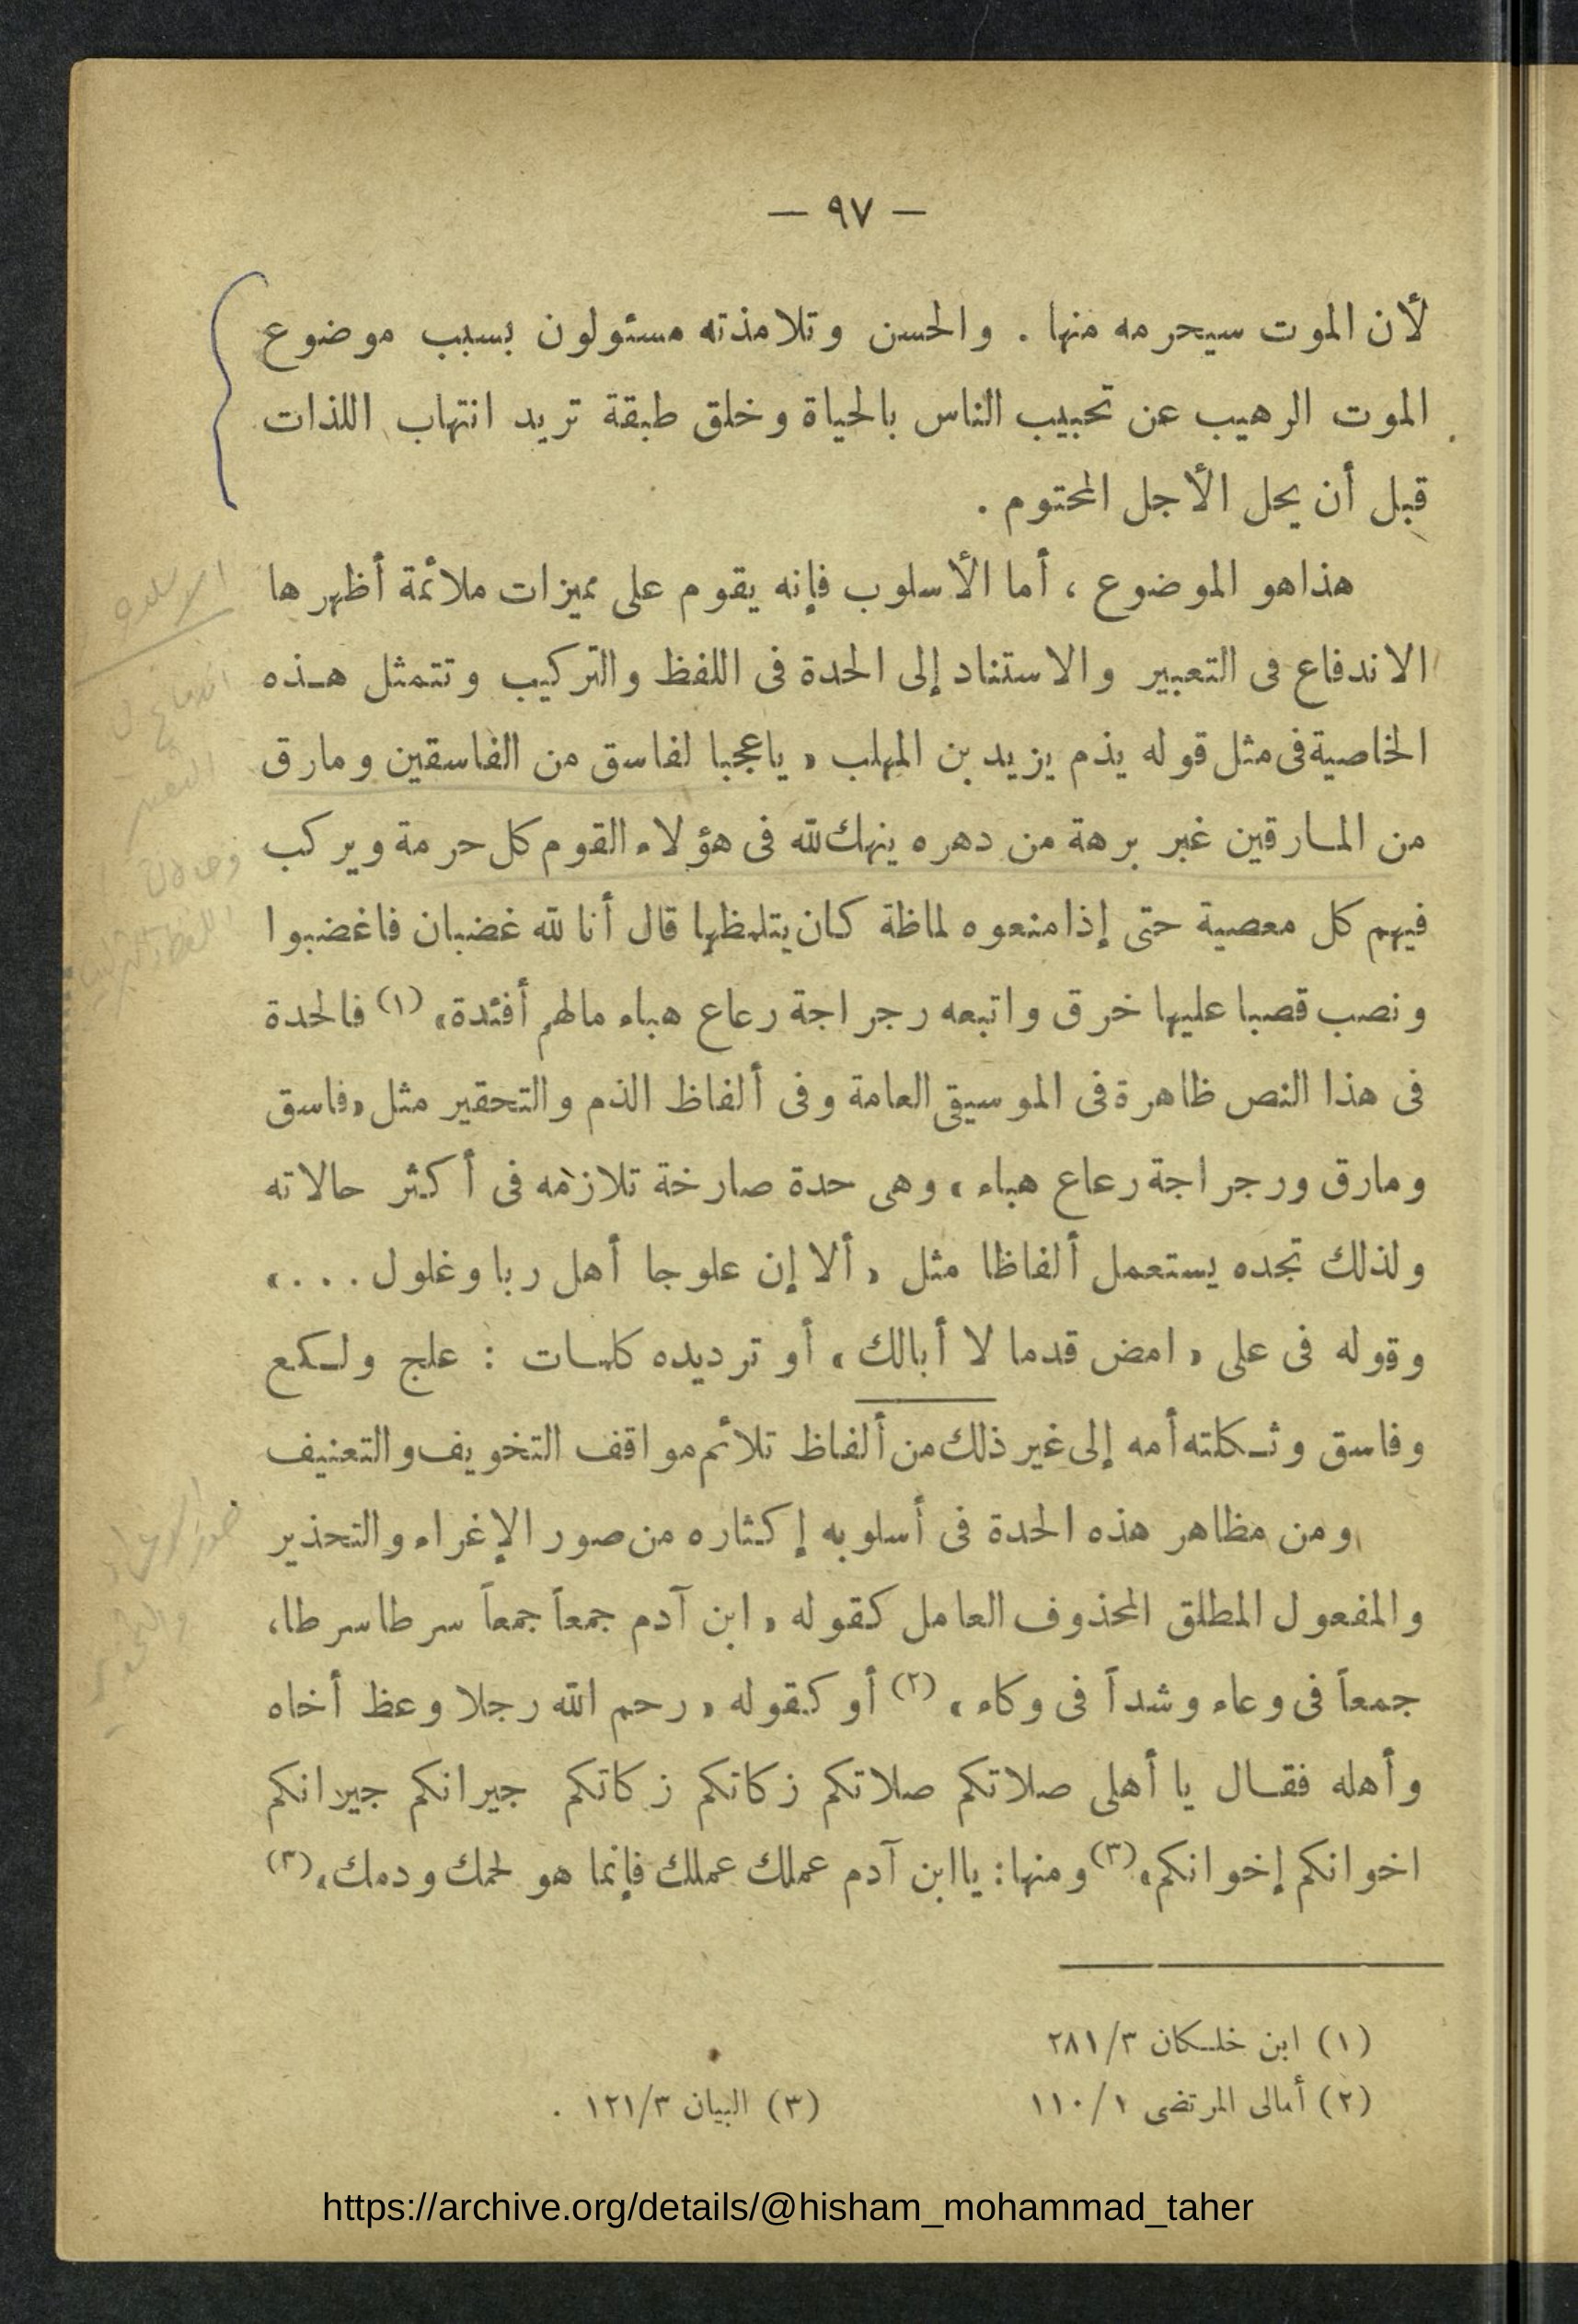 — ٩٧ —
لأن الموت سيحرمه منها . والحسن وتلامذته مسئولون بسبب موضوع
الموت الرهيب عن تحبيب الناس بالحياة وخلق طبقة تريد انتهاب اللذات
قبل أن يحل الأجل المحتوم .
هذا هو الموضوع ، أما الأسلوب فإنه يقوم على مميزات ملائمة أظهرها
الاندفاع فى التعبير والاستناد إلى الحدة فى اللفظ والتركيب وتتمثل هـذه
الخاصية فى مثل قوله يذم يزيد بن المهلب « ياعجبا لفاسق من الفاسقين ومارق
من المـارقين غبر برهة من دهره ينهك لله فى هؤلاء القوم كل حرمة ويركب
فيهم كل معصية حتى إذا منعوه لماظة كان يتلمظها قال أنا لله غضبان فاغضبوا
ونصب قصبا عليها خرق واتبعه رجراجة رعاع هباء مالهم أفئدة» (١) فالحدة
فى هذا النص ظاهرة فى الموسيقى العامة وفى ألفاظ الذم والتحقير مثل «فاسق
ومارق ورجراجة رعاع هباء » وهى حدة صارخة تلازمه فى أكثر حالاته
ولذلك تجده يستعمل ألفاظا مثل « ألا إن علوجا أهل ربا وغلول . . . »
وقوله فى على « امض قدما لا أبالك » أو ترديده كلمـات : علج ولـكع
وفاسق وثـكلته أمه إلى غير ذلك من ألفاظ تلائم مواقف التخويف والتعنيف
ومن مظاهر هذه الحدة فى أسلوبه إكثاره من صور الإغراء والتحذير
والمفعول المطلق المحذوف العامل كقوله « ابن آدم جمعاً جمعاً سرطا سرطا،
جمعاً فى وعاء وشداً فى وكاء » (٢) أو كقوله « رحم الله رجلا وعظ أخاه
وأهله فقـال يا أهلى صلاتكم صلاتكم زكاتكم زكاتكم جيرانكم جيرانكم
اخوانكم إخوانكم» (٣) ومنها: ياابن آدم عملك عملك فإنما هو لحمك ودمك» (٣)
(١) ابن خلـكان ٢٨١/٣
(٢) أمالى المرتضى ١١٠/١
(٣) البيان ١٢١/٣ .
https://archive.org/details/@hisham_mohammad_taher